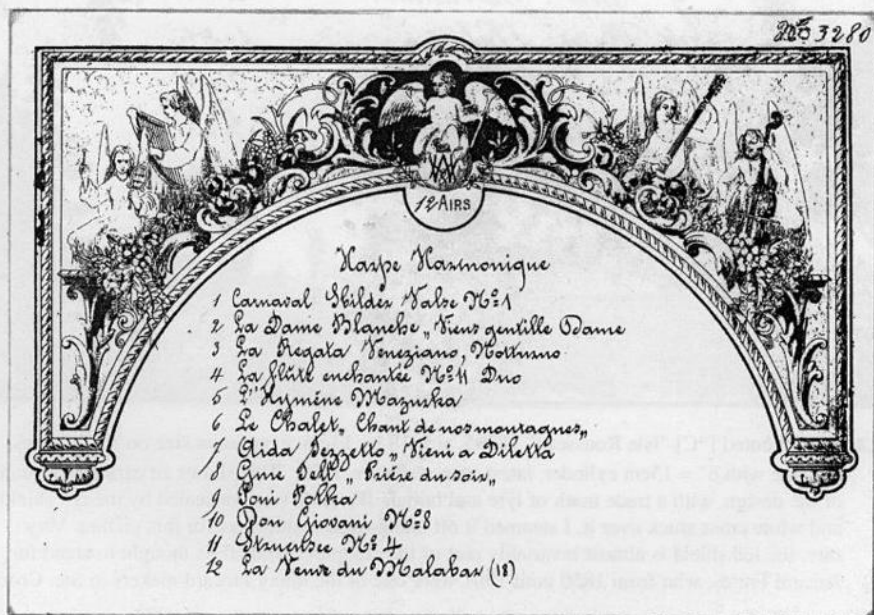 No 3280
12 AIRS
Harpe Harmonique
1 Carnaval Valse No 1
2 La Dame Blanche „Viens gentille Dame
3 La Regata Veneziano, Notturno
4 La flûte enchantée No 11 Duo
5 L'Hymène Mazurka
6 Le Chalet „Chant de nos montagnes„
7 Aida Terzetto „Vieni a Diletta
8 Gme Tell „Prière du soir„
9 Toni Polka
10 Don Giovani No 8
11 No 4
12 La du Malabar